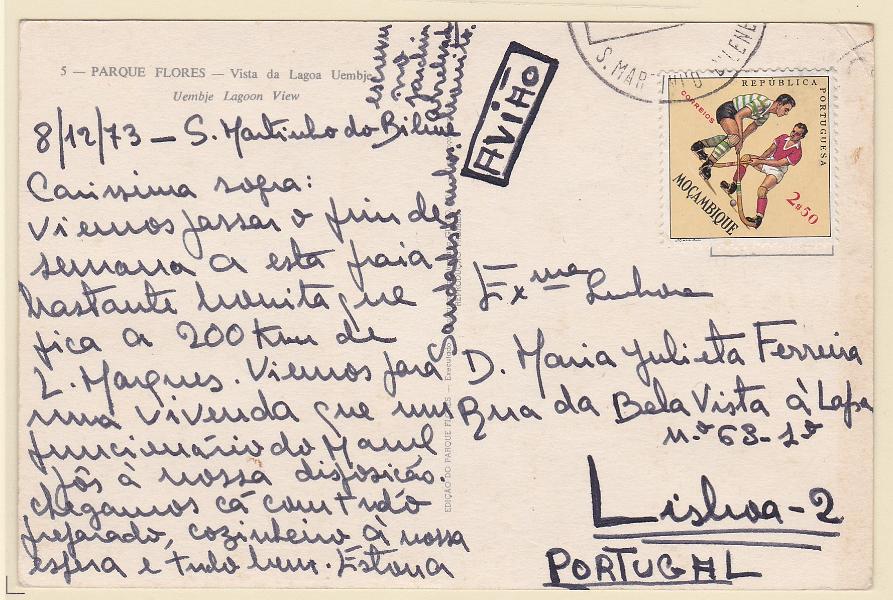 5 — PARQUE FLORES — Vista da Lagoa Uembje
Uembje Lagoon View
8/12/73 — S. Martinho do Bilene
Carissima sogra:
Viemos passar o fim de
semana a esta praia
bastante bonita que
fica a 200 Km de
L. Marques. Viemos para
uma vivenda que um
funcionário do Manel
pôs à nossa disposição.
Chegamos cá com tudo
preparado, cozinheiro à nossa
espera e tudo bem. Estou a
escrever
no
jardim
Saudades tantos
AVIÃO
S. MARTINHO BILENE
REPÚBLICA PORTUGUESA
CORREIOS
MOÇAMBIQUE
2$50
Exma Senhora
D. Maria Julieta Ferreira
Rua da Bela Vista à Lapa
n.º 63-1º
Lisboa-2
PORTUGAL
EDIÇÃO DO PARQUE FLORES —